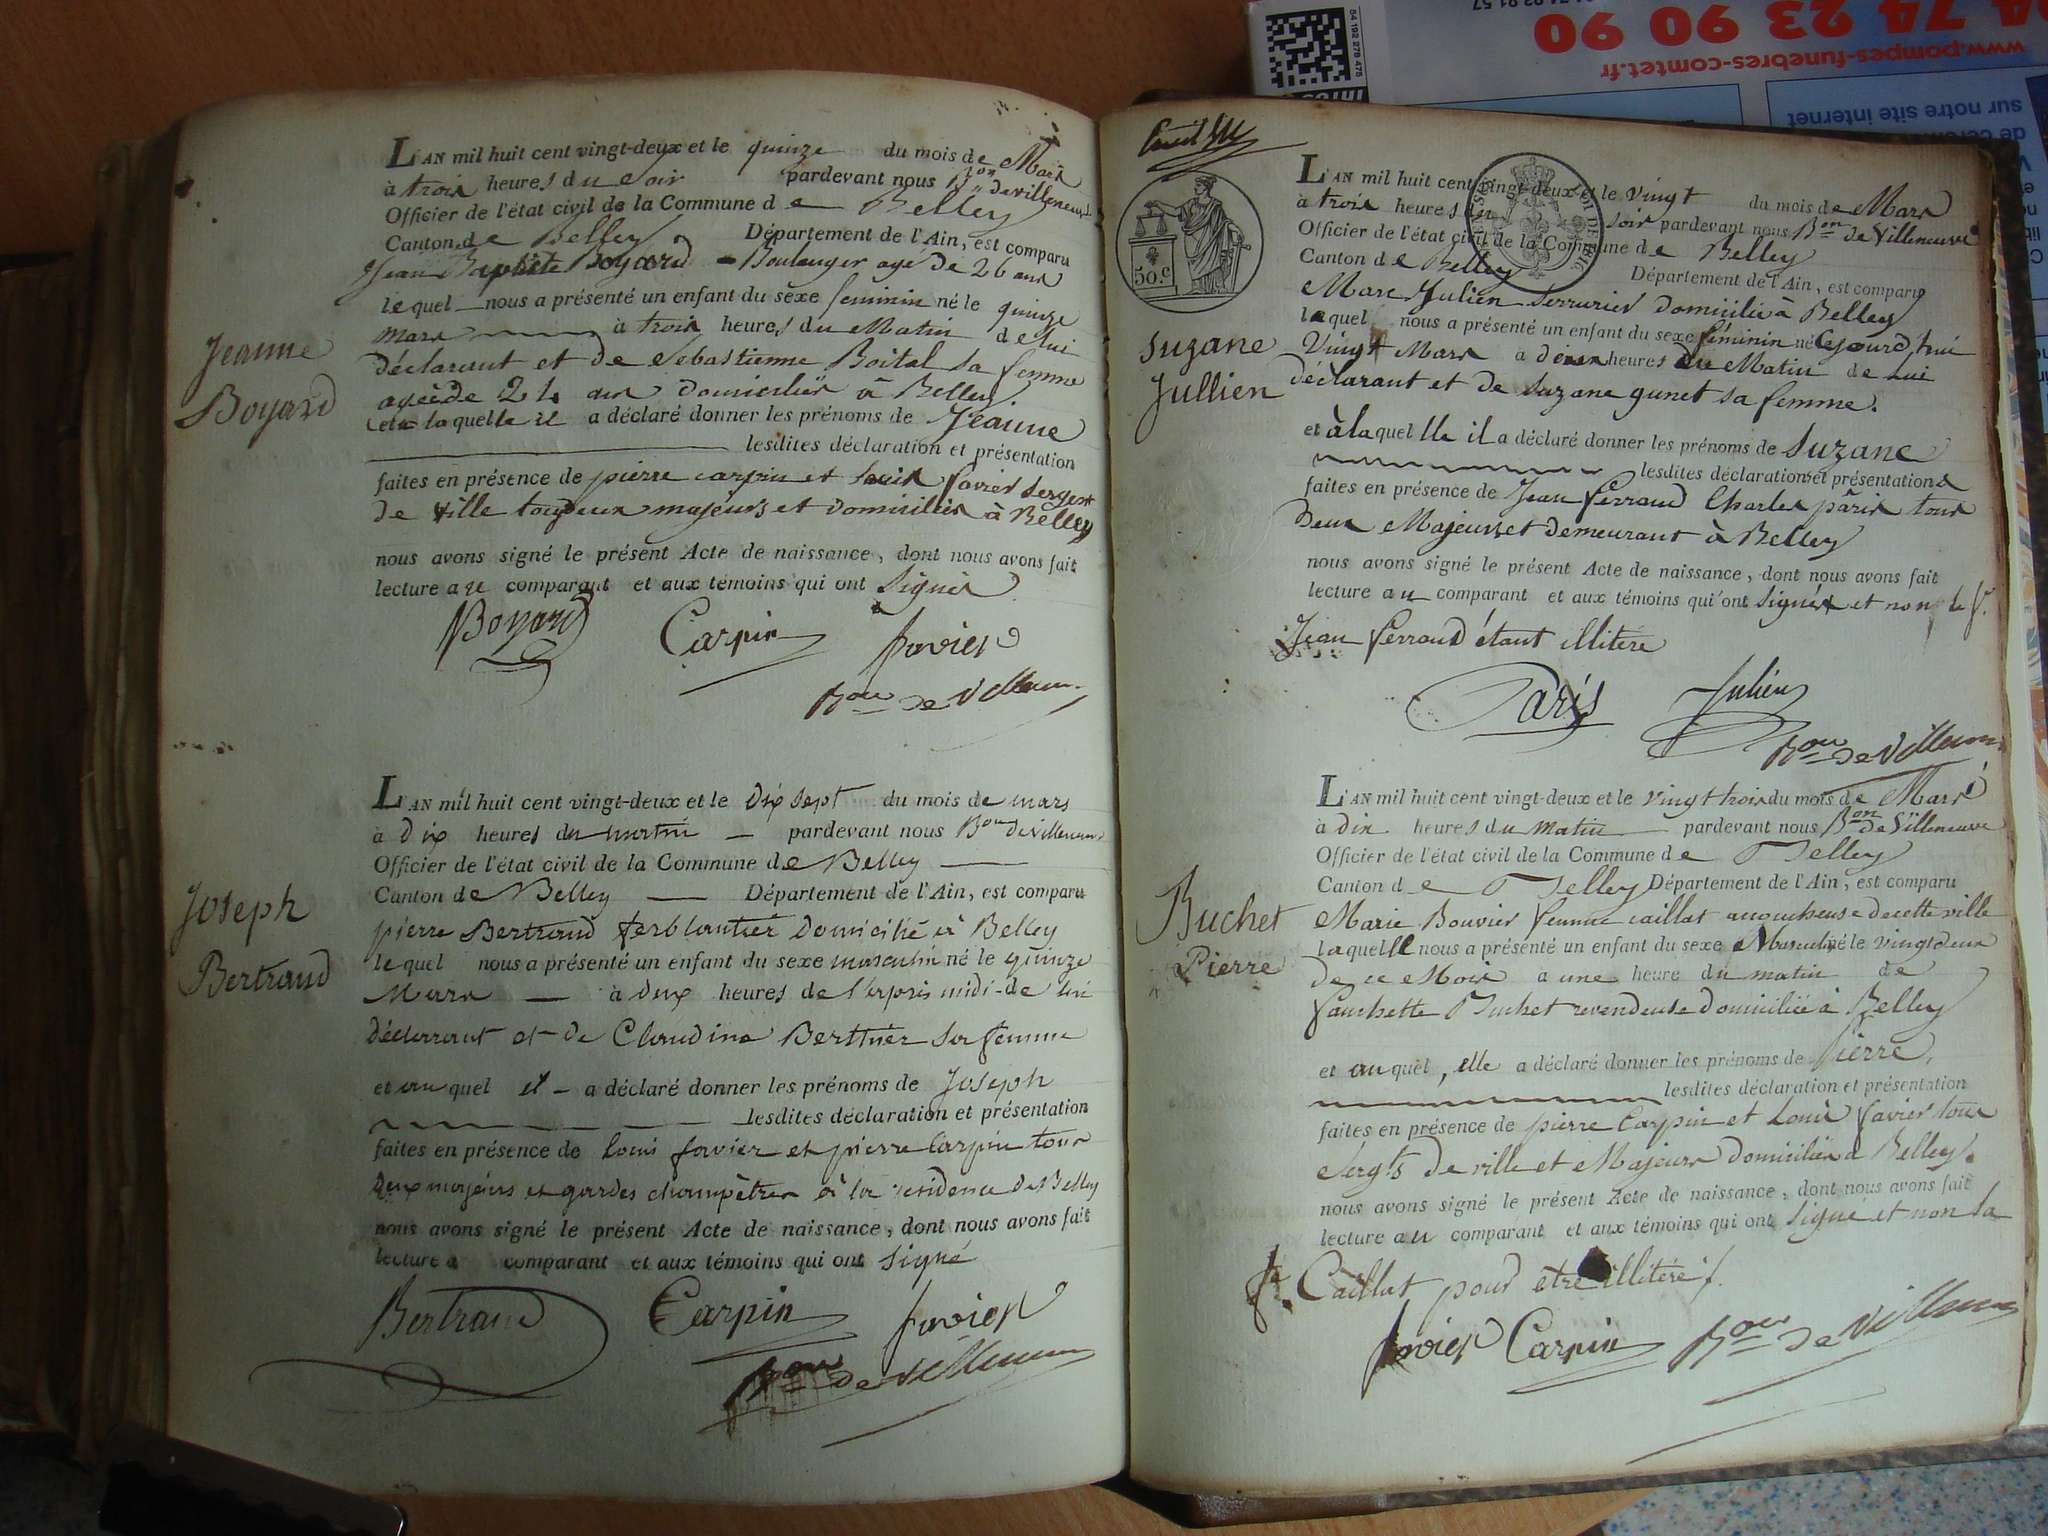 Jeanne
Boyard
L'AN mil huit cent vingt-deux et le quinze du mois de Mars
à trois heures du soir pardevant nous Bon de villeneuve
Officier de l'état civil de la Commune de Belley
Canton de Belley Département de l'Ain, est comparu
Jean Baptiste Boyard Boulanger agé de 26 ans
lequel nous a présenté un enfant du sexe feminin né le quinze
mars à trois heures du Matin de lui
déclarant et de Sebastienne Boital sa femme
agée de 24 ans domiciliés à Belley
et à laquelle il a déclaré donner les prénoms de Jeanne
lesdites déclaration et présentation
faites en présence de pierre carpin et louis favier sergent
de ville tous deux majeurs et domiciliés à Belley
nous avons signé le présent Acte de naissance, dont nous avons fait
lecture au comparant et aux témoins qui ont signés
Boyard Carpin favier
Bon de Villeneuve
Joseph
Bertrand
L'AN mil huit cent vingt-deux et le dix sept du mois de mars
à dix heures du matin pardevant nous Bon de villeneuve
Officier de l'état civil de la Commune de Belley
Canton de Belley Département de l'Ain, est comparu
pierre Bertrand ferblantier domicilié à Belley
lequel nous a présenté un enfant du sexe masculin né le quinze
Mars à deux heures de l'aprais midi de lui
déclarant et de Claudine Berthier sa femme
et au quel il a déclaré donner les prénoms de Joseph
lesdites déclaration et présentation
faites en présence de louis favier et pierre Carpin tous
deux majeurs et gardes champètres à la residence de Belley
nous avons signé le présent Acte de naissance, dont nous avons fait
lecture a comparant et aux témoins qui ont signé
Bertrand Carpin favier
Bon de Villeneuve
50.c
Suzane
Jullien
L'AN mil huit cent vingt-deux et le vingt du mois de Mars
à trois heures du soir pardevant nous Bon de Villeneuve
Officier de l'état civil de la Commune de Belley
Canton de Belley Département de l'Ain, est comparu
Marc Julien Serrurier domicilié à Belley
lequel nous a présenté un enfant du sexe féminin né Cejourd'hui
Vingt Mars à deux heures du Matin de Lui
déclarant et de Suzane gunet sa femme.
et à laquelle il a déclaré donner les prénoms de Suzane
lesdites déclarations et présentations
faites en présence de Jean ferraud Charles pâris tous
Deux Majeurs et demeurant à Belley
nous avons signé le présent Acte de naissance, dont nous avons fait
lecture au comparant et aux témoins qui ont signés et non le S.
Jean ferraud étant illitére
Paris Julien
Bon de Villeneuve
Buchet
Pierre
L'AN mil huit cent vingt-deux et le vingt trois du mois de Mars
à dix heures du matin pardevant nous Bon de Villeneuve
Officier de l'état civil de la Commune de Belley
Canton de Belley Département de l'Ain, est comparu
Marie Bouvier femme caillat accucheuse de cette ville
laquelle nous a présenté un enfant du sexe Masculin né le vingt deux
de ce Mois à une heure du matin de
fanchette Buchet revendeuse domiciliée à Belley
et auquel, elle a déclaré donner les prénoms de Pierre,
lesdites déclaration et présentation
faites en présence de pierre Carpin et Louis favier tous
Sergts de ville et Majeurs domiciliés à Belley.
nous avons signé le présent Acte de naissance, dont nous avons fait
lecture au comparant et aux témoins qui ont signé et non la
fe. Caillat pour etre illitére
favier Carpin Bon de Villeneuve
04 74 23 90 90
www.pompes-funebres-comtet.fr
sur notre site internet